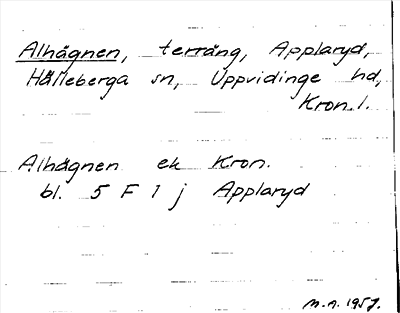 Alhägnen, terräng, Applaryd,
Hälleberga sn, Uppvidinge hd,
Kron. l.
Alhägnen ek Kron.
bl. 5 F 1 j Applaryd
M.A. 1957.